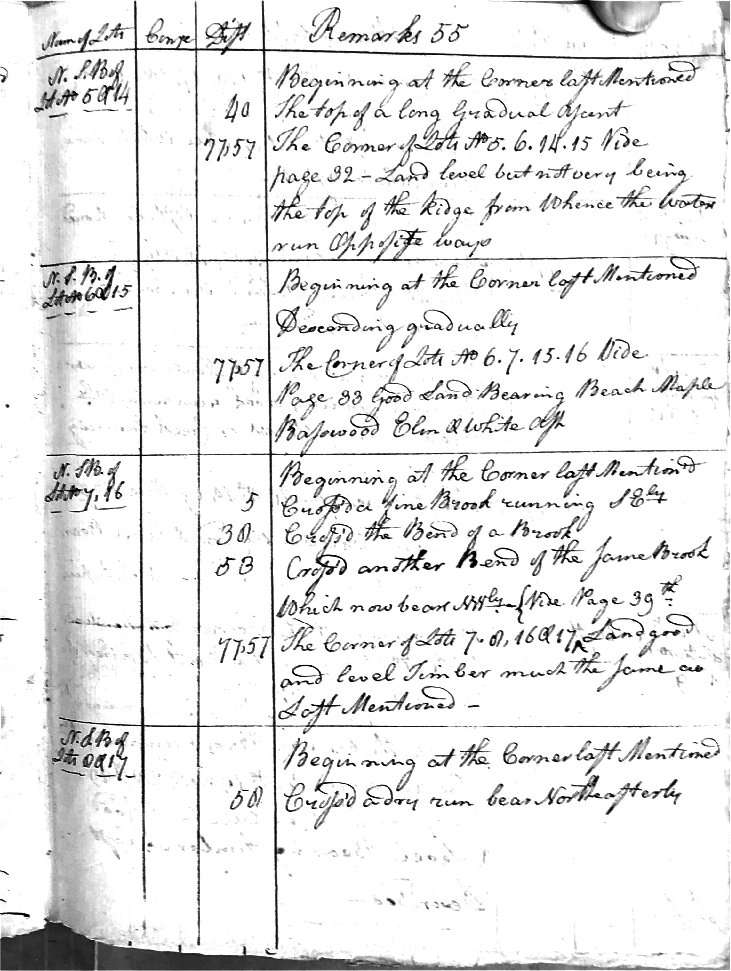 Num of Lots Courſe Diſt Remarks 55
N. S. B of
Lots No 5 & 14
Beginning at the Corner laſt Mentioned
40 The top of a long Gradual Aſcent
77,57 The Corner of Lots No 5. 6. 14. 15 Vide
page 32 – Land level but not very being
the top of the Ridge from Whence the Waters
run Oppoſite ways
N. S. B. of
Lots No 6 & 15
Beginning at the Corner laſt Mentioned
Descending gradually
77,57 The Corner of Lots No 6. 7. 15. 16 Vide
Page 33 Good Land Bearing Beach Maple
Baſswood Elm & White Aſh
N. S B. of
Lots No 7, 16
Beginning at the Corner laſt Mention'd
5 Croſs'd a fine Brook running S Ely
38 Croſs'd the Bend of a Brook
53 Croſs'd another Bend of the ſame Brook
Which now bears NWly – { Vide Page 39th
77,57 The Corner of Lots 7. 8, 16 & 17 ‸ Land good
and level Timber much the ſame as
Laſt Mentioned –
N. S. B of
Lots 8 & 17
Beginning at the Corner laſt Mentioned
58 Croſs'd a dry run bears Northeaſterly